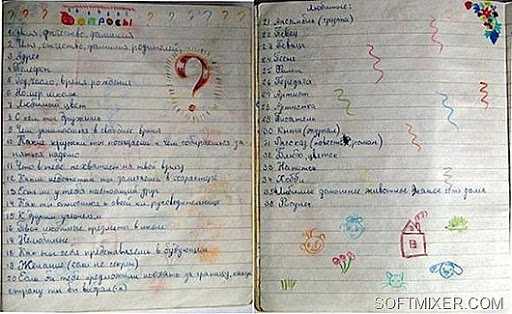 Вопросы
1 Имя, отчество, фамилия
2 Имя, отчество, фамилия родителей
3 Адрес
4 Телефон
5 Число, время рождения
6 Номер школы
7 Любимый цвет
8 С кем ты дружишь
9 Чем занимаешься в свободное время
10 Какие кружки ты посещаешь и чем собираешься за-
няться
11 Что в тебе не хватает на твой взгляд
12 Какие недостатки ты замечаешь в характере
13 Есть ли у тебя настоящий друг
14 Как ты относишься к своей кл. руководительнице
15 К другим учителям
16 Твои любимые предметы в школе
17 Нелюбимые
18 Как ты себя представляешь в будущем
19 Желание (если не секрет)
20 Если бы тебе предложили поехать за границу, какую
страну ты бы выбрал(а)
Любимые:
21 Ансамбль (группа)
22 Певец
23 Певица
24 Песня
25 Фильм
26 Передача
27 Артист
28 Артистка
29 Писатель
30 Книга (журнал)
31 Рассказ (повесть, роман)
32 Блюдо, цветок
33 Напиток
34
35 Любимые домашние животные
36
SOFTMIXER.COM